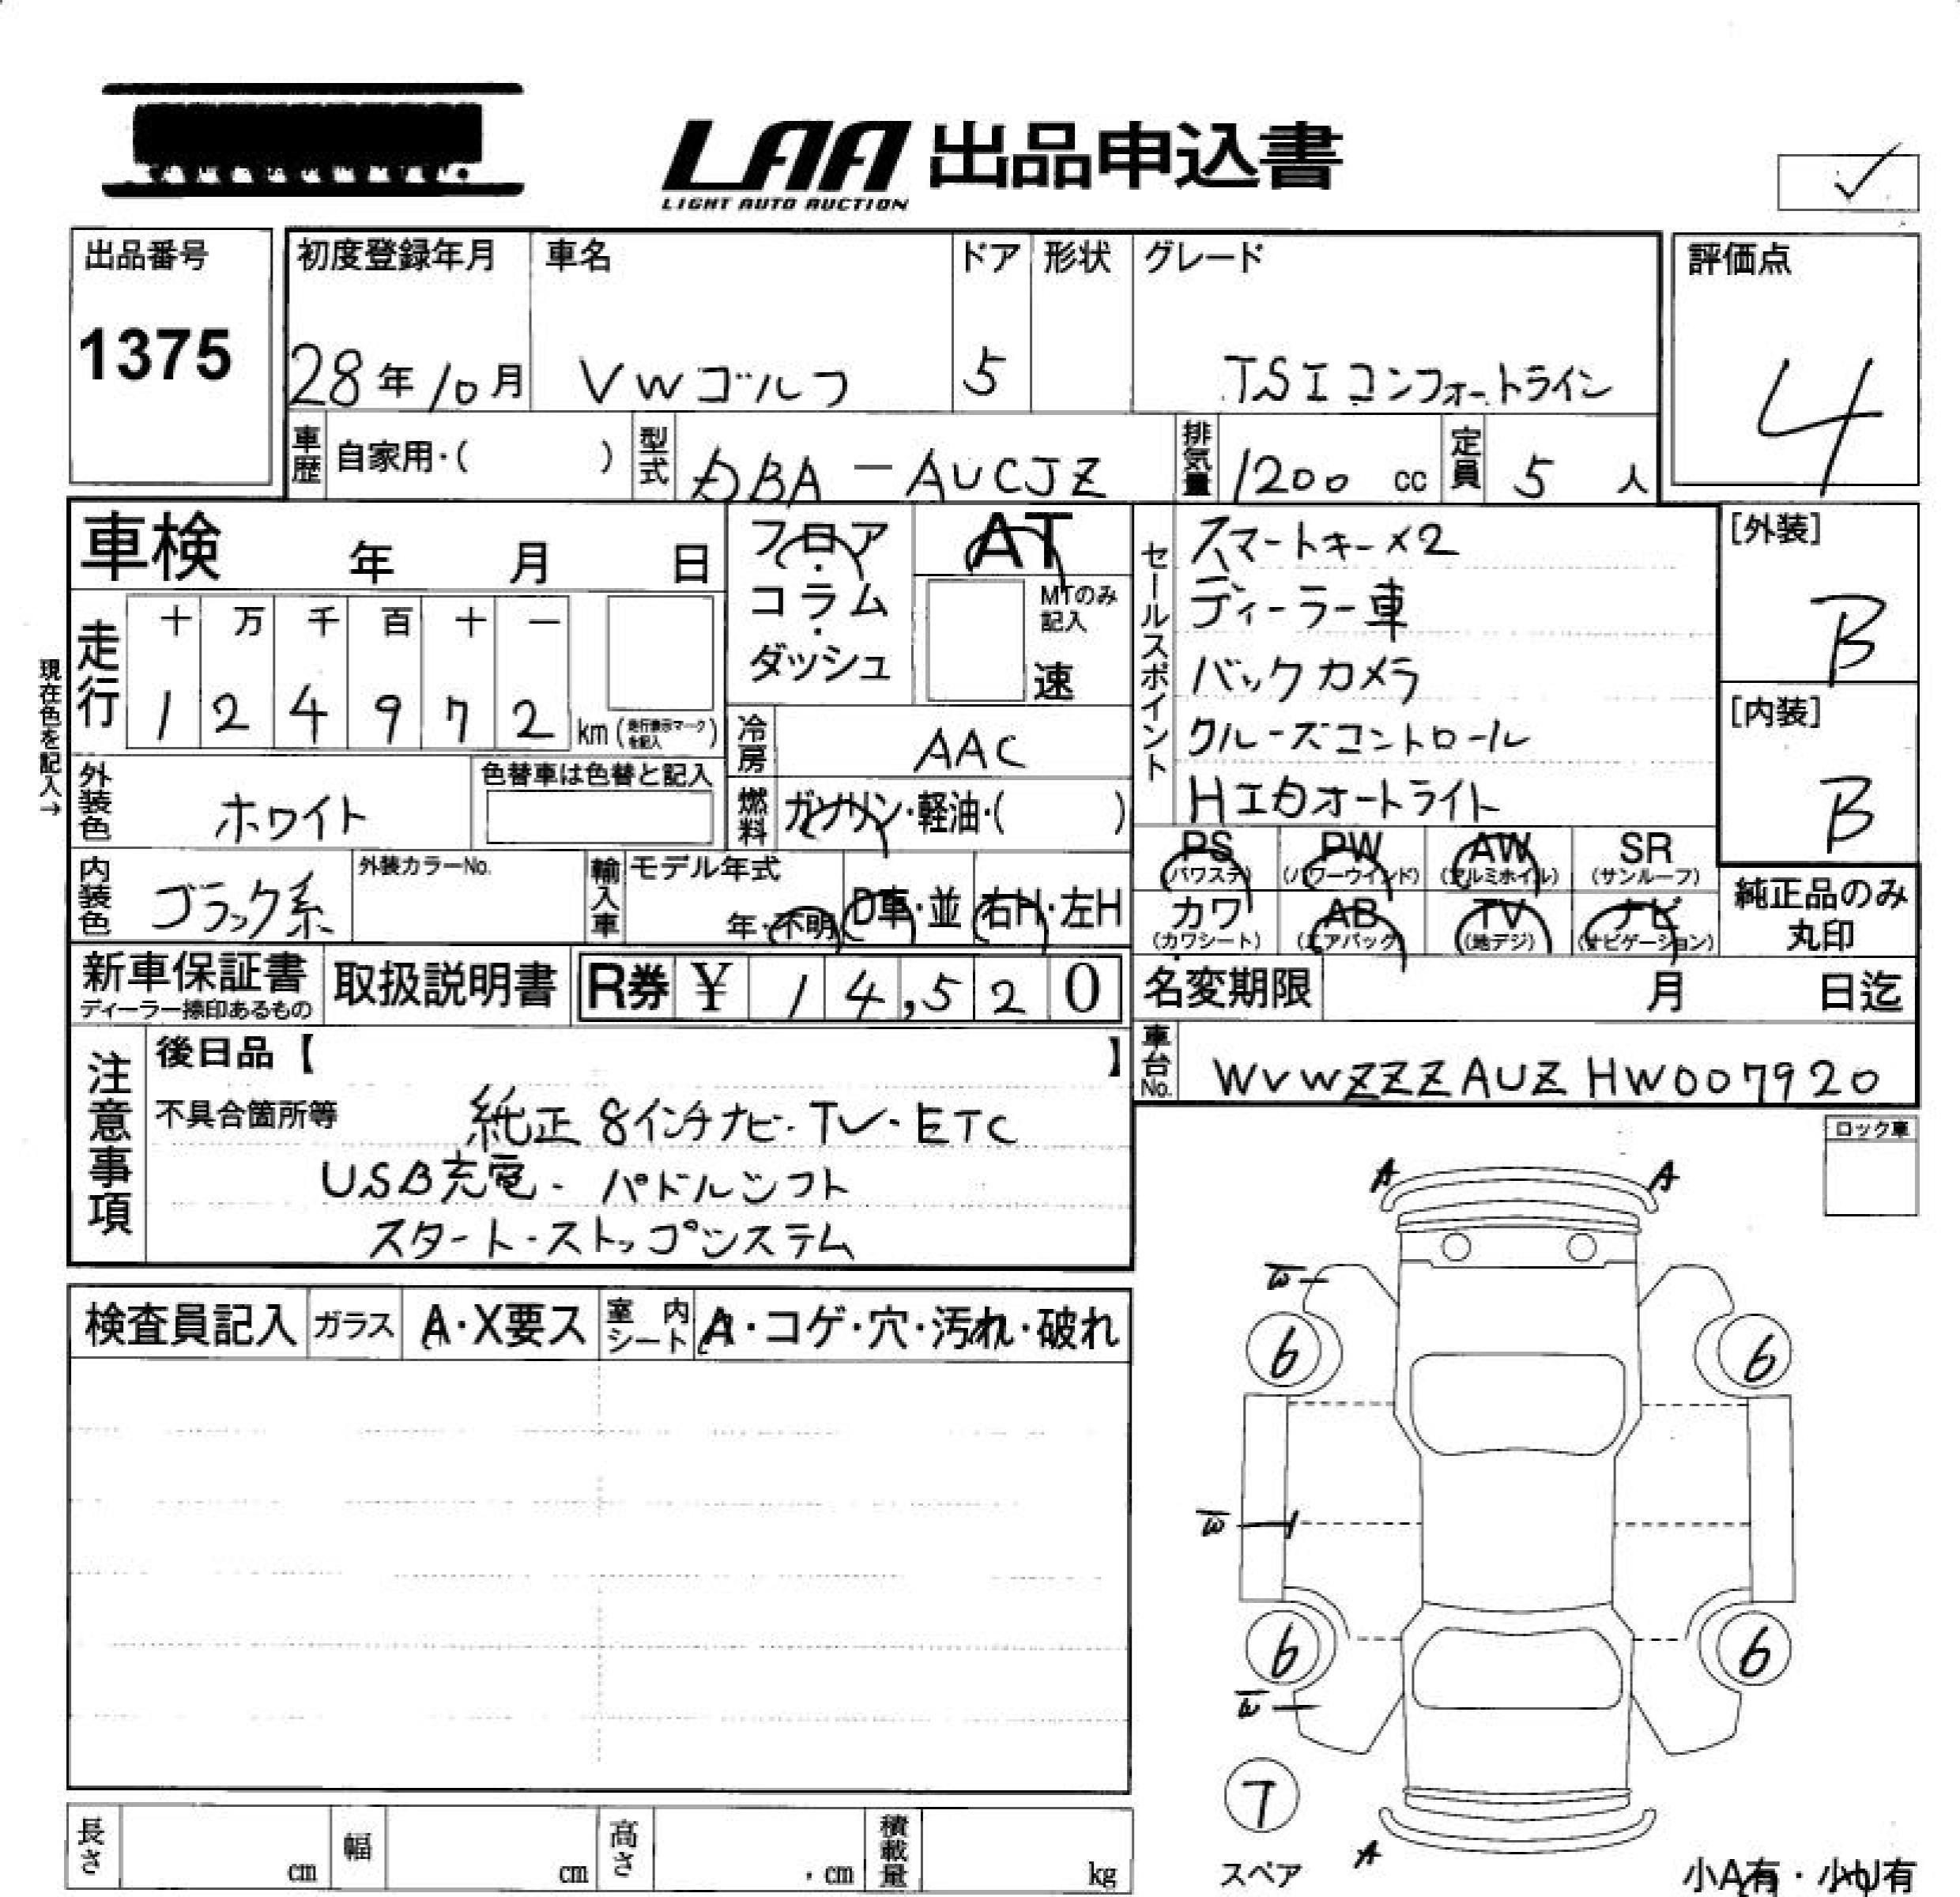 LAA 出品申込書
LIGHT AUTO AUCTION
出品番号
1375
初度登録年月
28年10月
車名
VWゴルフ
ドア
5
形状
グレード
TSIコンフォートライン
評価点
4
車歴
自家用・( )
型式
DBA-AUCJZ
排気量
1200 cc
定員
5 人
車検 年 月 日
フロア・コラム・ダッシュ
AT
MTのみ記入
速
現在色を記入→
走行
十 万 千 百 十 一
1 2 4 9 7 2 km (走行表示マークを記入)
冷房
AAC
外装色
ホワイト
色替車は色替と記入
燃料
ガソリン・軽油・( )
内装色
ブラック系
外装カラーNo.
輸入車
モデル年式
年・不明
D車・並
右H・左H
セールスポイント
スマートキー×2
ディーラー車
バックカメラ
クルーズコントロール
HID オートライト
[外装]
B
[内装]
B
PS (パワステ)
PW (パワーウインド)
AW (アルミホイル)
SR (サンルーフ)
カワ (カワシート)
AB (エアバック)
TV (地デジ)
ナビ (ナビゲーション)
純正品のみ丸印
新車保証書
ディーラー捺印あるもの
取扱説明書
R券 ¥ 14,520
名変期限 月 日迄
車台No.
WVWZZZAUZHW007920
注意事項
後日品【 】
不具合箇所等
純正8インチナビ・TV・ETC
USB充電・パドルシフト
スタート・ストップシステム
ロック車
A A
W
6 6
W
6 6
W
T
スペア
A
小A有・小U有
検査員記入
ガラス
A・X要ス
室内シート
A・コゲ・穴・汚れ・破れ
長さ cm
幅 cm
高さ cm
積載量 kg